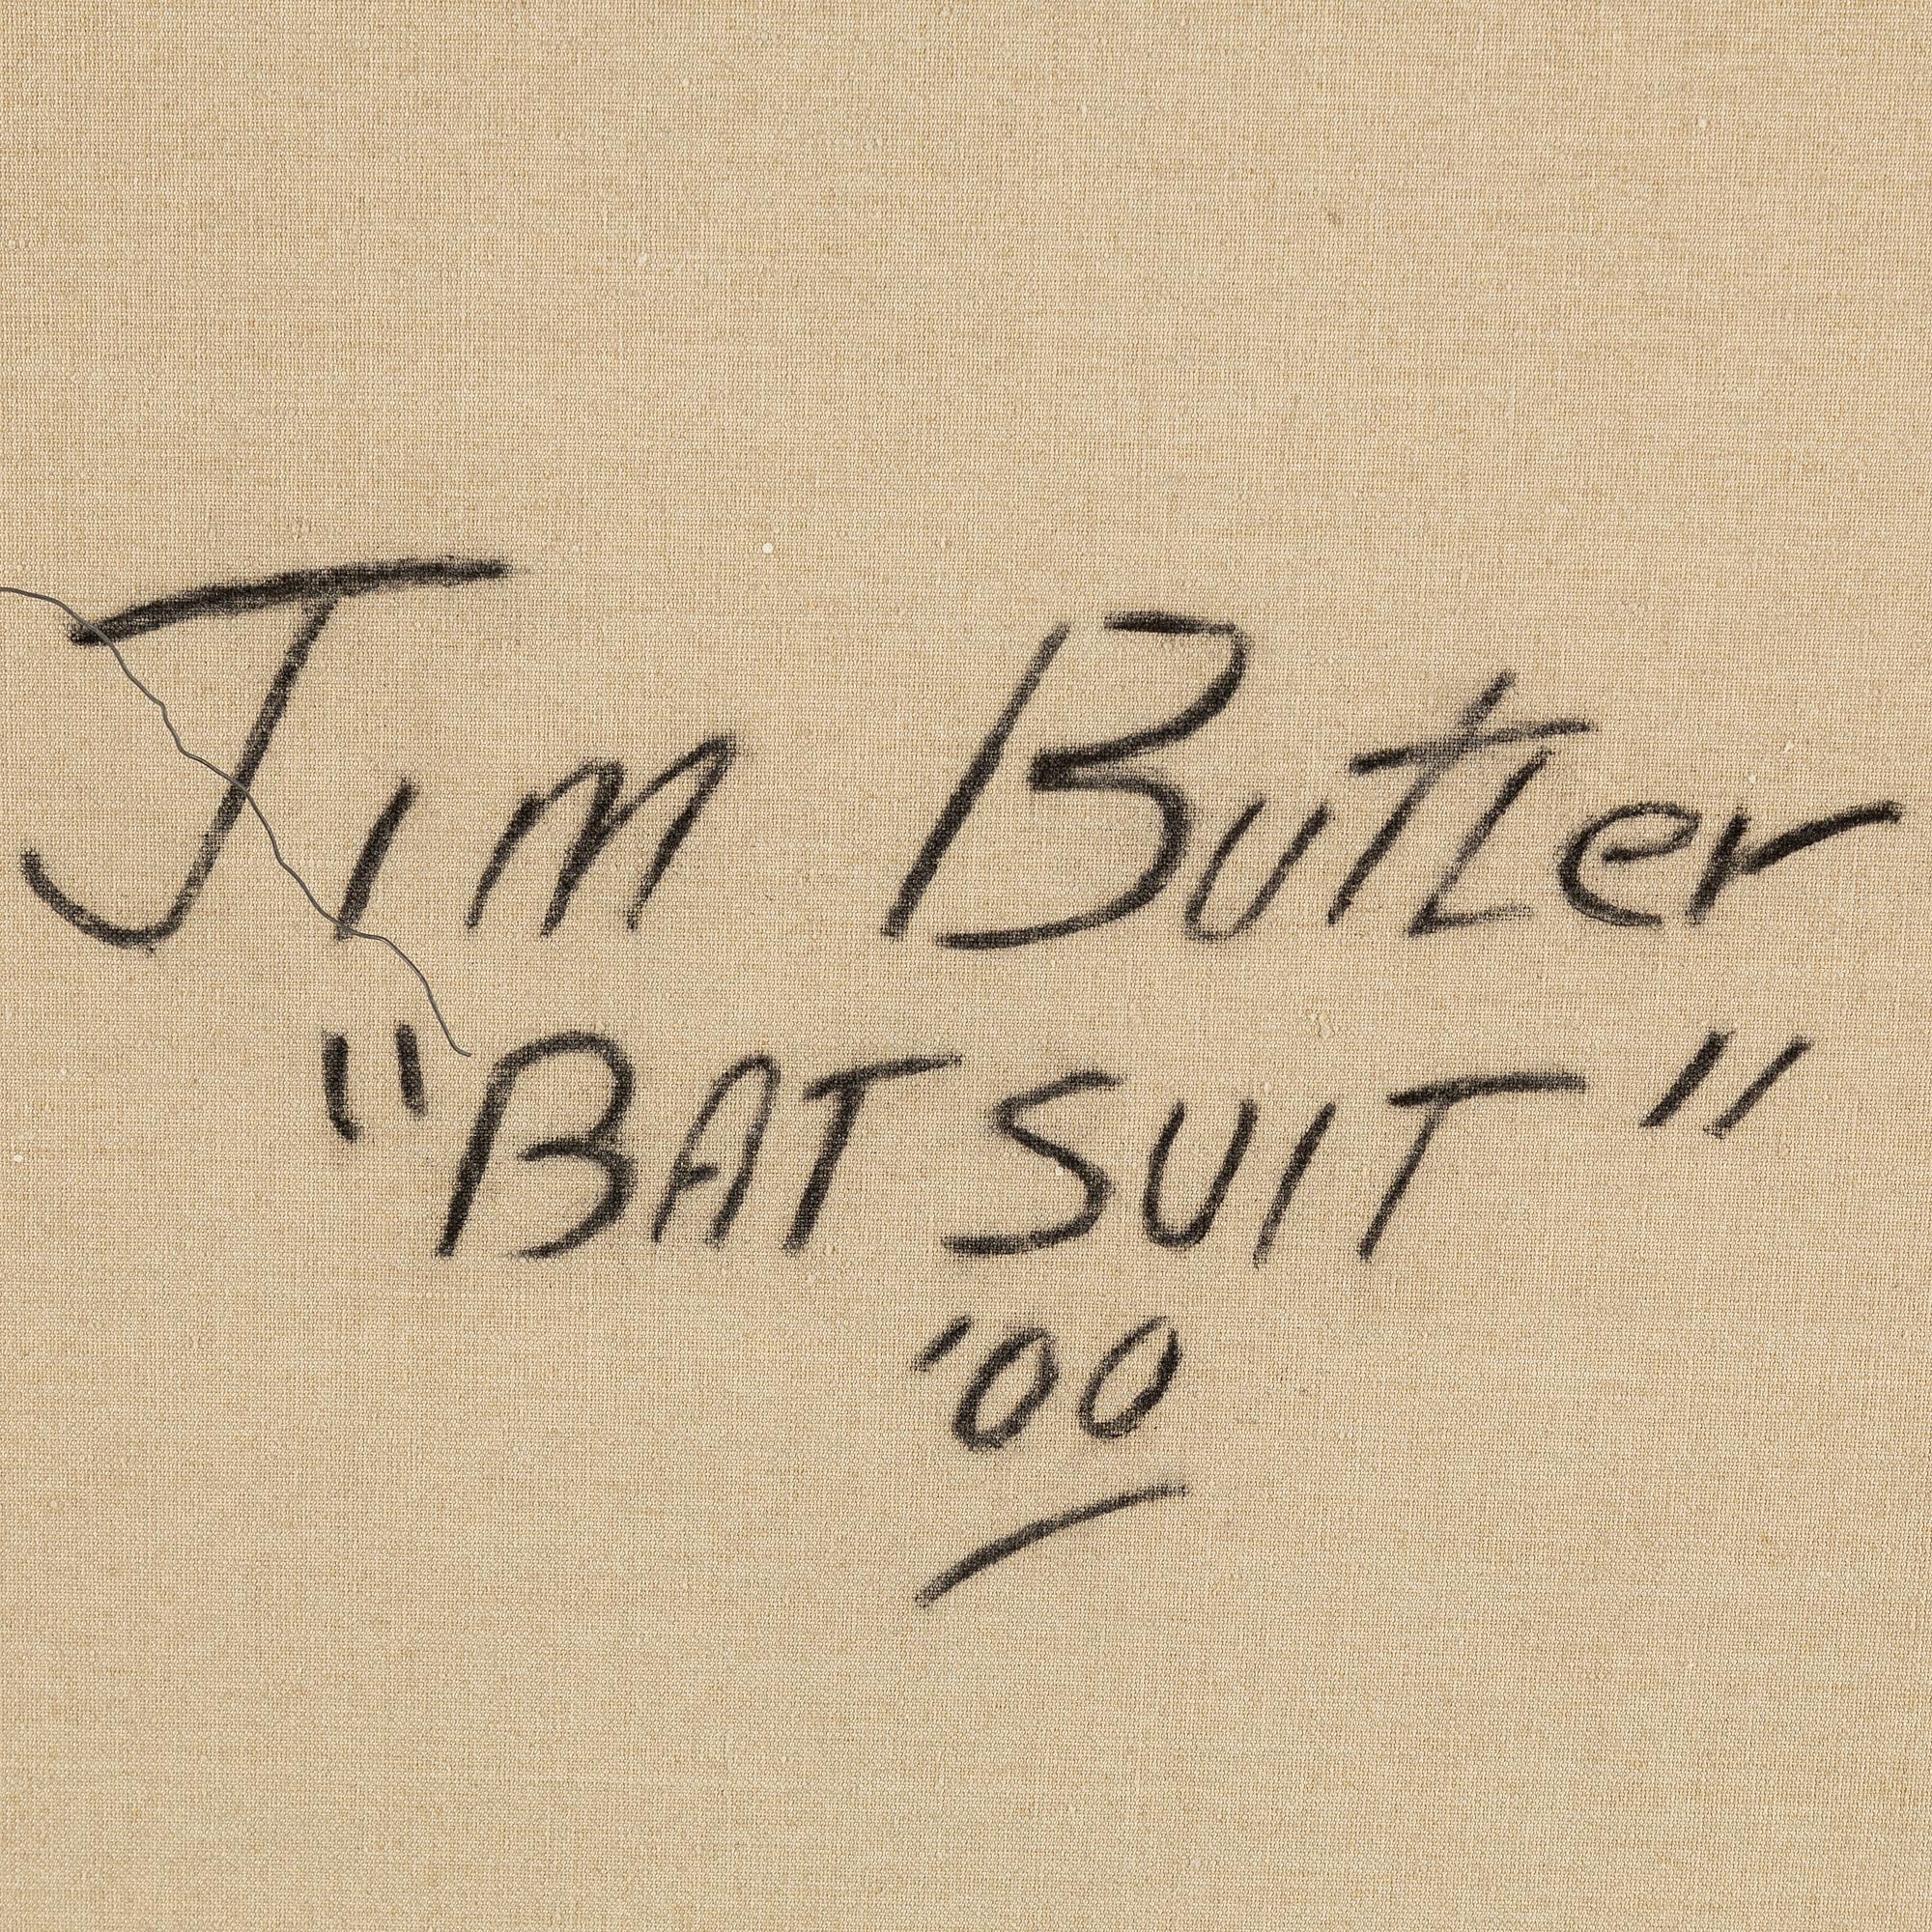 Jim Butler
"BAT SUIT"
'00